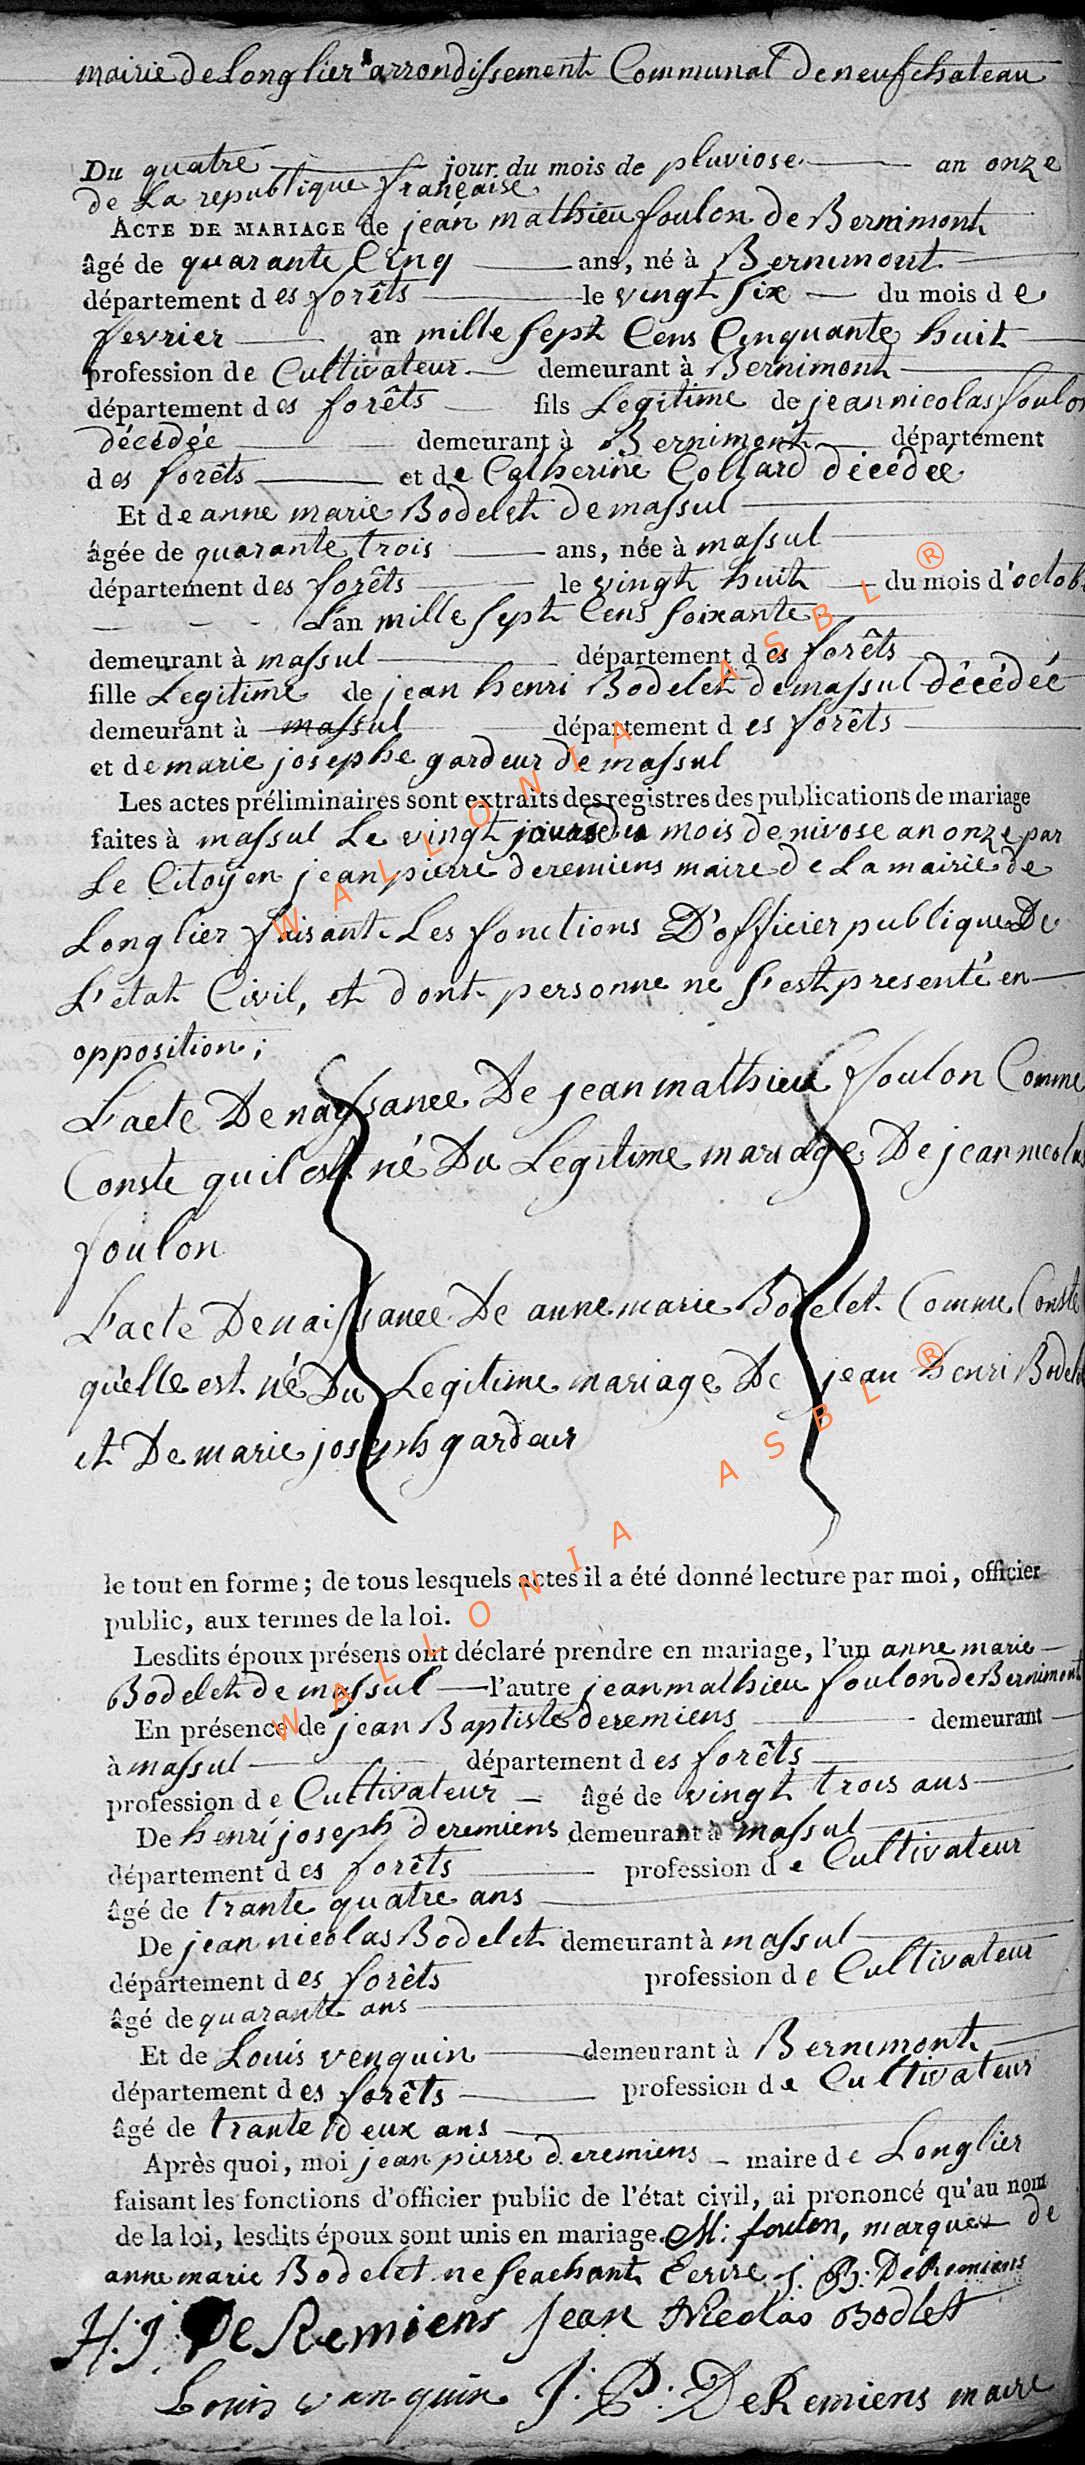 mairie de Longlier arrondissement Communal de neufchateau
Du quatre jour du mois de pluviose an onze
de La republique française.
ACTE DE MARIAGE de jean mathieu foulon de Bernimont
âgé de quarante Cinq ans, né à Bernimont
département des forêts le vingt six du mois de
fevrier an mille sept Cens Cinquante huit
profession de Cultivateur demeurant à Bernimont
département des forêts fils Legitime de jean nicolas foulon
décédée demeurant à Bernimont département
des forêts et de Catherine Collard décédée
Et de anne marie Bodelet de massul
âgée de quarante trois ans, née à massul
département des forêts le vingt huit du mois d'octob
L'an mille sept Cens soixante
demeurant à massul département des forêts
fille Legitime de jean henri Bodelet de massul décédée
demeurant à massul département des forêts
et de marie josephe gardeur de massul
Les actes préliminaires sont extraits des registres des publications de mariage
faites à massul Le vingt du mois de nivose an onze par
Le Citoyen jean pierre deremiens maire de La mairie de
Longlier faisant Les fonctions D'officier publique De
L'etat Civil, et dont personne ne s'est presenté en
opposition;
L'acte De naissance De jean mathieu foulon Comme
Conste qu il est né Du Legitime mariage De jean nicolas
foulon
L'acte De naissance De anne marie Bodelet Comme Conste
qu'elle est né Du Legitime mariage De jean henri Bodelet
et De marie joseph gardeur
le tout en forme; de tous lesquels actes il a été donné lecture par moi, officier
public, aux termes de la loi.
Lesdits époux présens ont déclaré prendre en mariage, l'un anne marie
Bodelet de massul l'autre jean mathieu foulon de Bernimont
En présence de jean Baptiste deremiens demeurant
à massul département des forêts
profession de Cultivateur âgé de vingt trois ans
De henri joseph deremiens demeurant à massul
département des forêts profession de Cultivateur
âgé de trante quatre ans
De jean nicolas Bodelet demeurant à massul
département des forêts profession de Cultivateur
âgé de quarante ans
Et de Louis venquin demeurant à Bernimont
département des forêts profession de Cultivateur
âgé de trante deux ans
Après quoi, moi jean pierre deremiens maire de Longlier
faisant les fonctions d'officier public de l'état civil, ai prononcé qu'au nom
de la loi, lesdits époux sont unis en mariage. M: foulon, marque de
anne marie Bodelet ne seachant Ecrire J. B: DeRemiens
H: J: DeRemiens jean Nicolas Bodlet
Louis vanquin J: P: DeRemiens maire
WALLONIA ASBL ®
WALLONIA ASBL ®